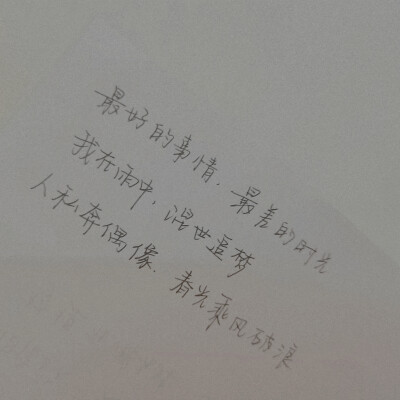 最好的事情.最差的时光
我在雨中,混世逐梦
人私奔偶像.春光乘风破浪